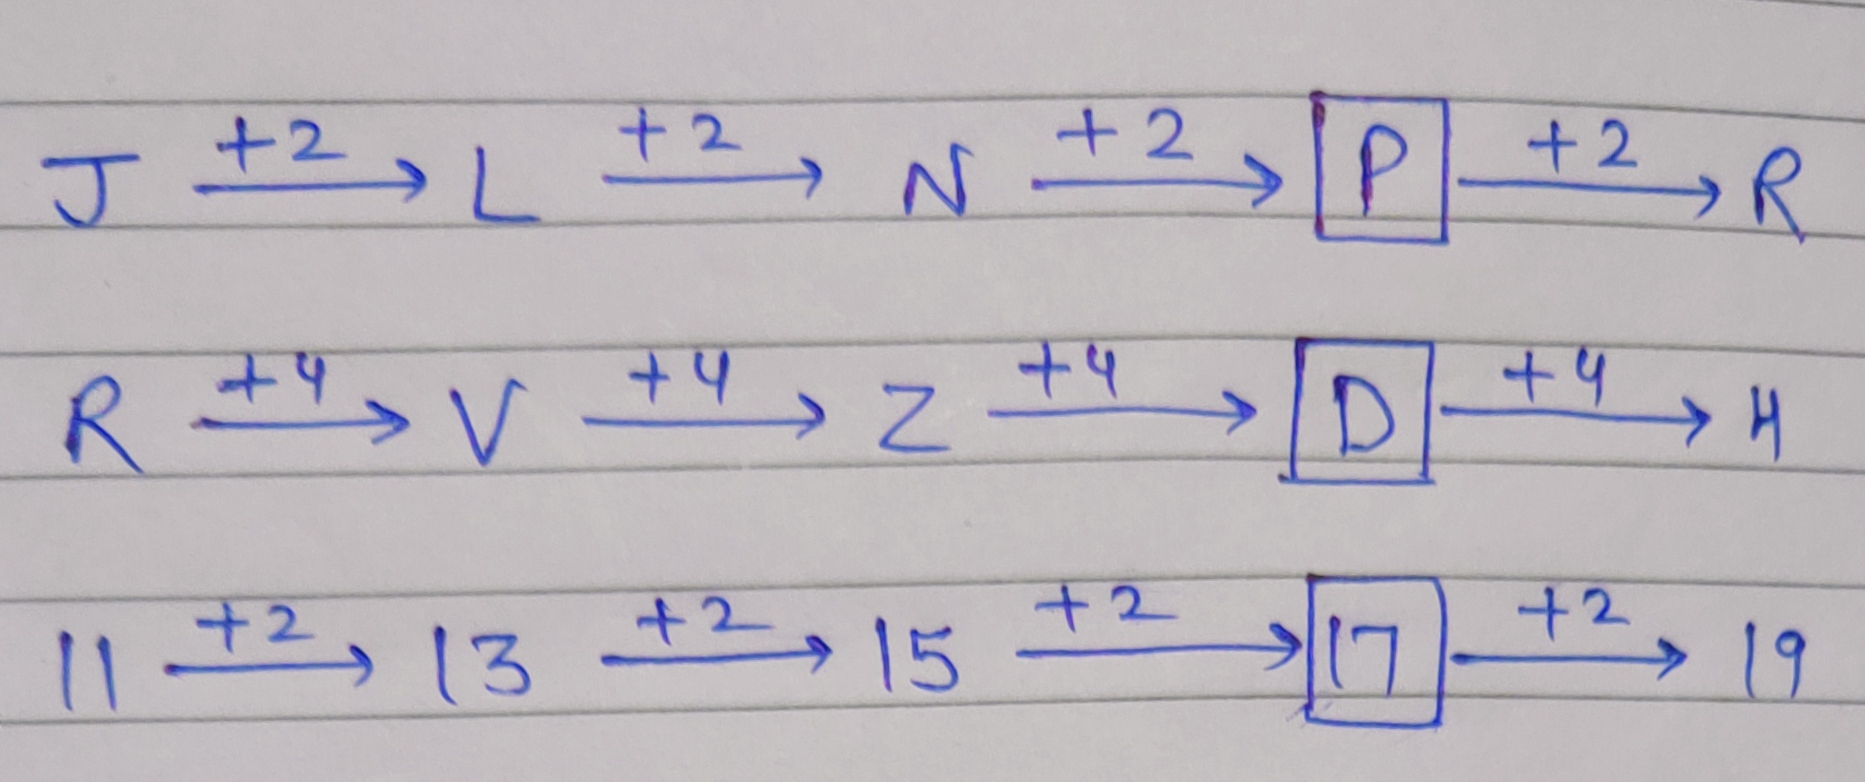 J +2→ L +2→ N +2→ P +2→ R
R +4→ V +4→ Z +4→ D +4→ H
11 +2→ 13 +2→ 15 +2→ 17 +2→ 19